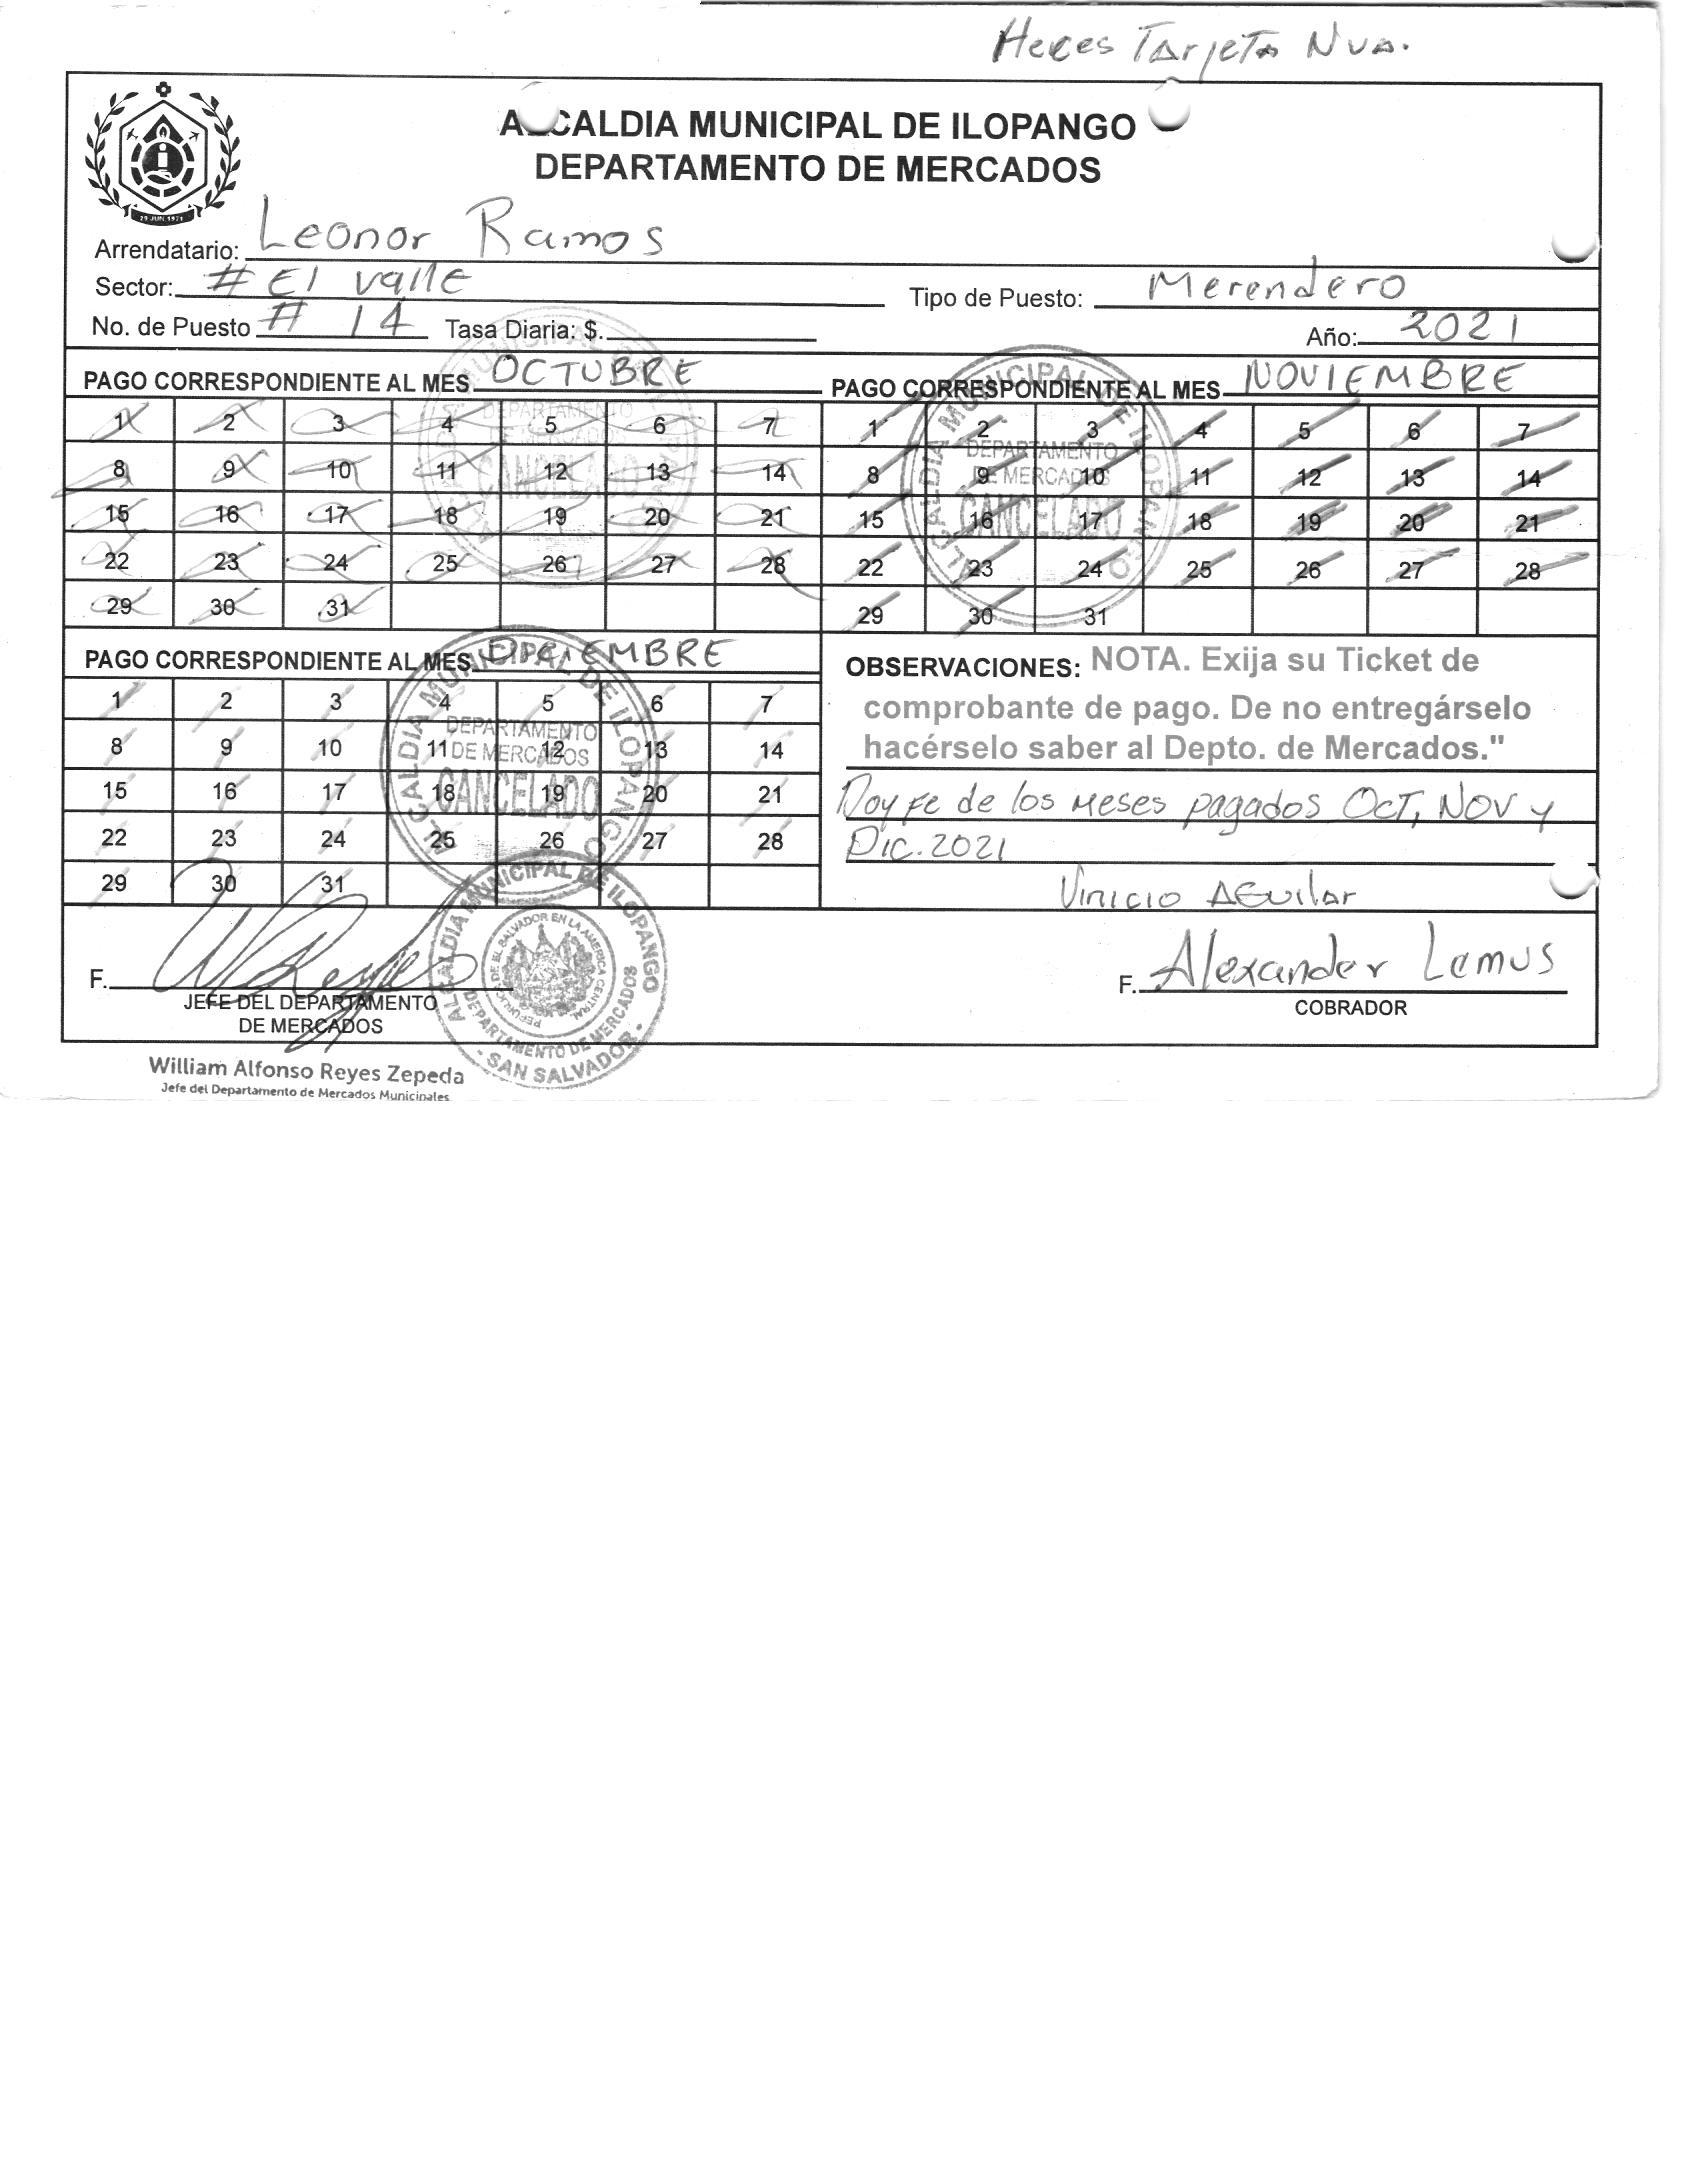 Tarjeta Nva.
ALCALDIA MUNICIPAL DE ILOPANGO
DEPARTAMENTO DE MERCADOS
29 JUN. 1971
Arrendatario: Leonor Ramos
Sector: # El Valle Tipo de Puesto: Merendero
No. de Puesto # 14 Tasa Diaria: $. Año: 2021
PAGO CORRESPONDIENTE AL MES OCTUBRE
1 2 3 4 5 6 7
8 9 10 11 12 13 14
15 16 17 18 19 20 21
22 23 24 25 26 27 28
29 30 31
ALCALDIA MUNICIPAL DE ILOPANGO
DEPARTAMENTO
DE MERCADOS
CANCELADO
PAGO CORRESPONDIENTE AL MES NOVIEMBRE
1 2 3 4 5 6 7
8 9 10 11 12 13 14
15 16 17 18 19 20 21
22 23 24 25 26 27 28
29 30 31
ALCALDIA MUNICIPAL DE ILOPANGO
DEPARTAMENTO
DE MERCADOS
CANCELADO
PAGO CORRESPONDIENTE AL MES
1 2 3 4 5 6 7
8 9 10 11 12 13 14
15 16 17 18 19 20 21
22 23 24 25 26 27 28
29 30 31
ALCALDIA MUNICIPAL DE ILOPANGO
DEPARTAMENTO
DE MERCADOS
CANCELADO
OBSERVACIONES: NOTA. Exija su Ticket de
comprobante de pago. De no entregárselo
hacérselo saber al Depto. de Mercados."
Doy fe de los meses pagados OCT, NOV y
DIC. 2021
Vinicio Aguilar
F.
JEFE DEL DEPARTAMENTO
DE MERCADOS
ALCALDIA MUNICIPAL DE ILOPANGO
DEPARTAMENTO DE MERCADOS
- SAN SALVADOR -
DE EL SALVADOR EN LA AMERICA CENTRAL
F. Alexander Lemus
COBRADOR
William Alfonso Reyes Zepeda
Jefe del Departamento de Mercados Municipales